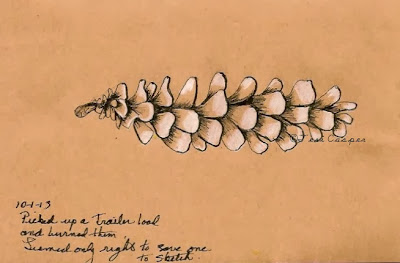 © Teri Casper
10-1-13
Picked up a Trailer load
and burned them.
Seamed only right to save one
to sketch.